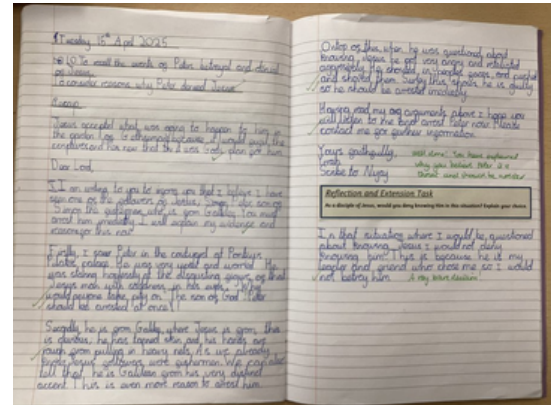 Tuesday 15th April 2025
LO To recall the events of Peter's betrayal and denial
of Jesus.
To consider reasons why Peter denied Jesus.
Recap
Jesus accepted what was going to happen to him in
the garden of Gethsemane because it would fulfil the
scriptures and he knew that this was God's plan for him
Dear Lord,
I am writing to you to inform you that I believe I have
seen one of the followers of Jesus, Simon Peter son of
Simon the fisherman who is from Galilee. You must
arrest him immediately. I will explain my evidence and
reasons for this now.
Firstly, I saw Peter in the courtyard of Pontius
Pilate's palace. He was very and worried. He
was staring hopelessly at the disgusting figure of that
Jesus man with sadness in his eyes. Why
would anyone take pity on 'The son of God'? Peter
should be arrested at once!
Secondly, he is from Galilee, where Jesus is from, this
is obvious, he has tanned skin and his hands are
rough from pulling in heavy nets. As we already
know, Jesus' followers were fisherman. We can also
tell that he is Galilean from his very distinct
accent. This is even more reason to arrest him.
On top of this, when he was questioned about
knowing Jesus he got very angry and retaliated
aggressively. He shouted in people's faces, and pushed
and shoved them. Surely this shows he is guilty
so he should be arrested imediatly.
Having read my arguments above I hope you
will listen to me and arrest Peter now. Please
contact me for further information.
Yours faithfully,
Scribe to
Well done! You have explained
why you believe Peter is a
threat and should be arrested
Reflection and Extension Task
As a disciple of Jesus, would you deny knowing him in this situation? Explain your choice.
In that situation where I would be questioned
about knowing Jesus I would not deny
knowing him. This is because he is my
leader and friend who chose me so I would
not betray him. A very brave decision!